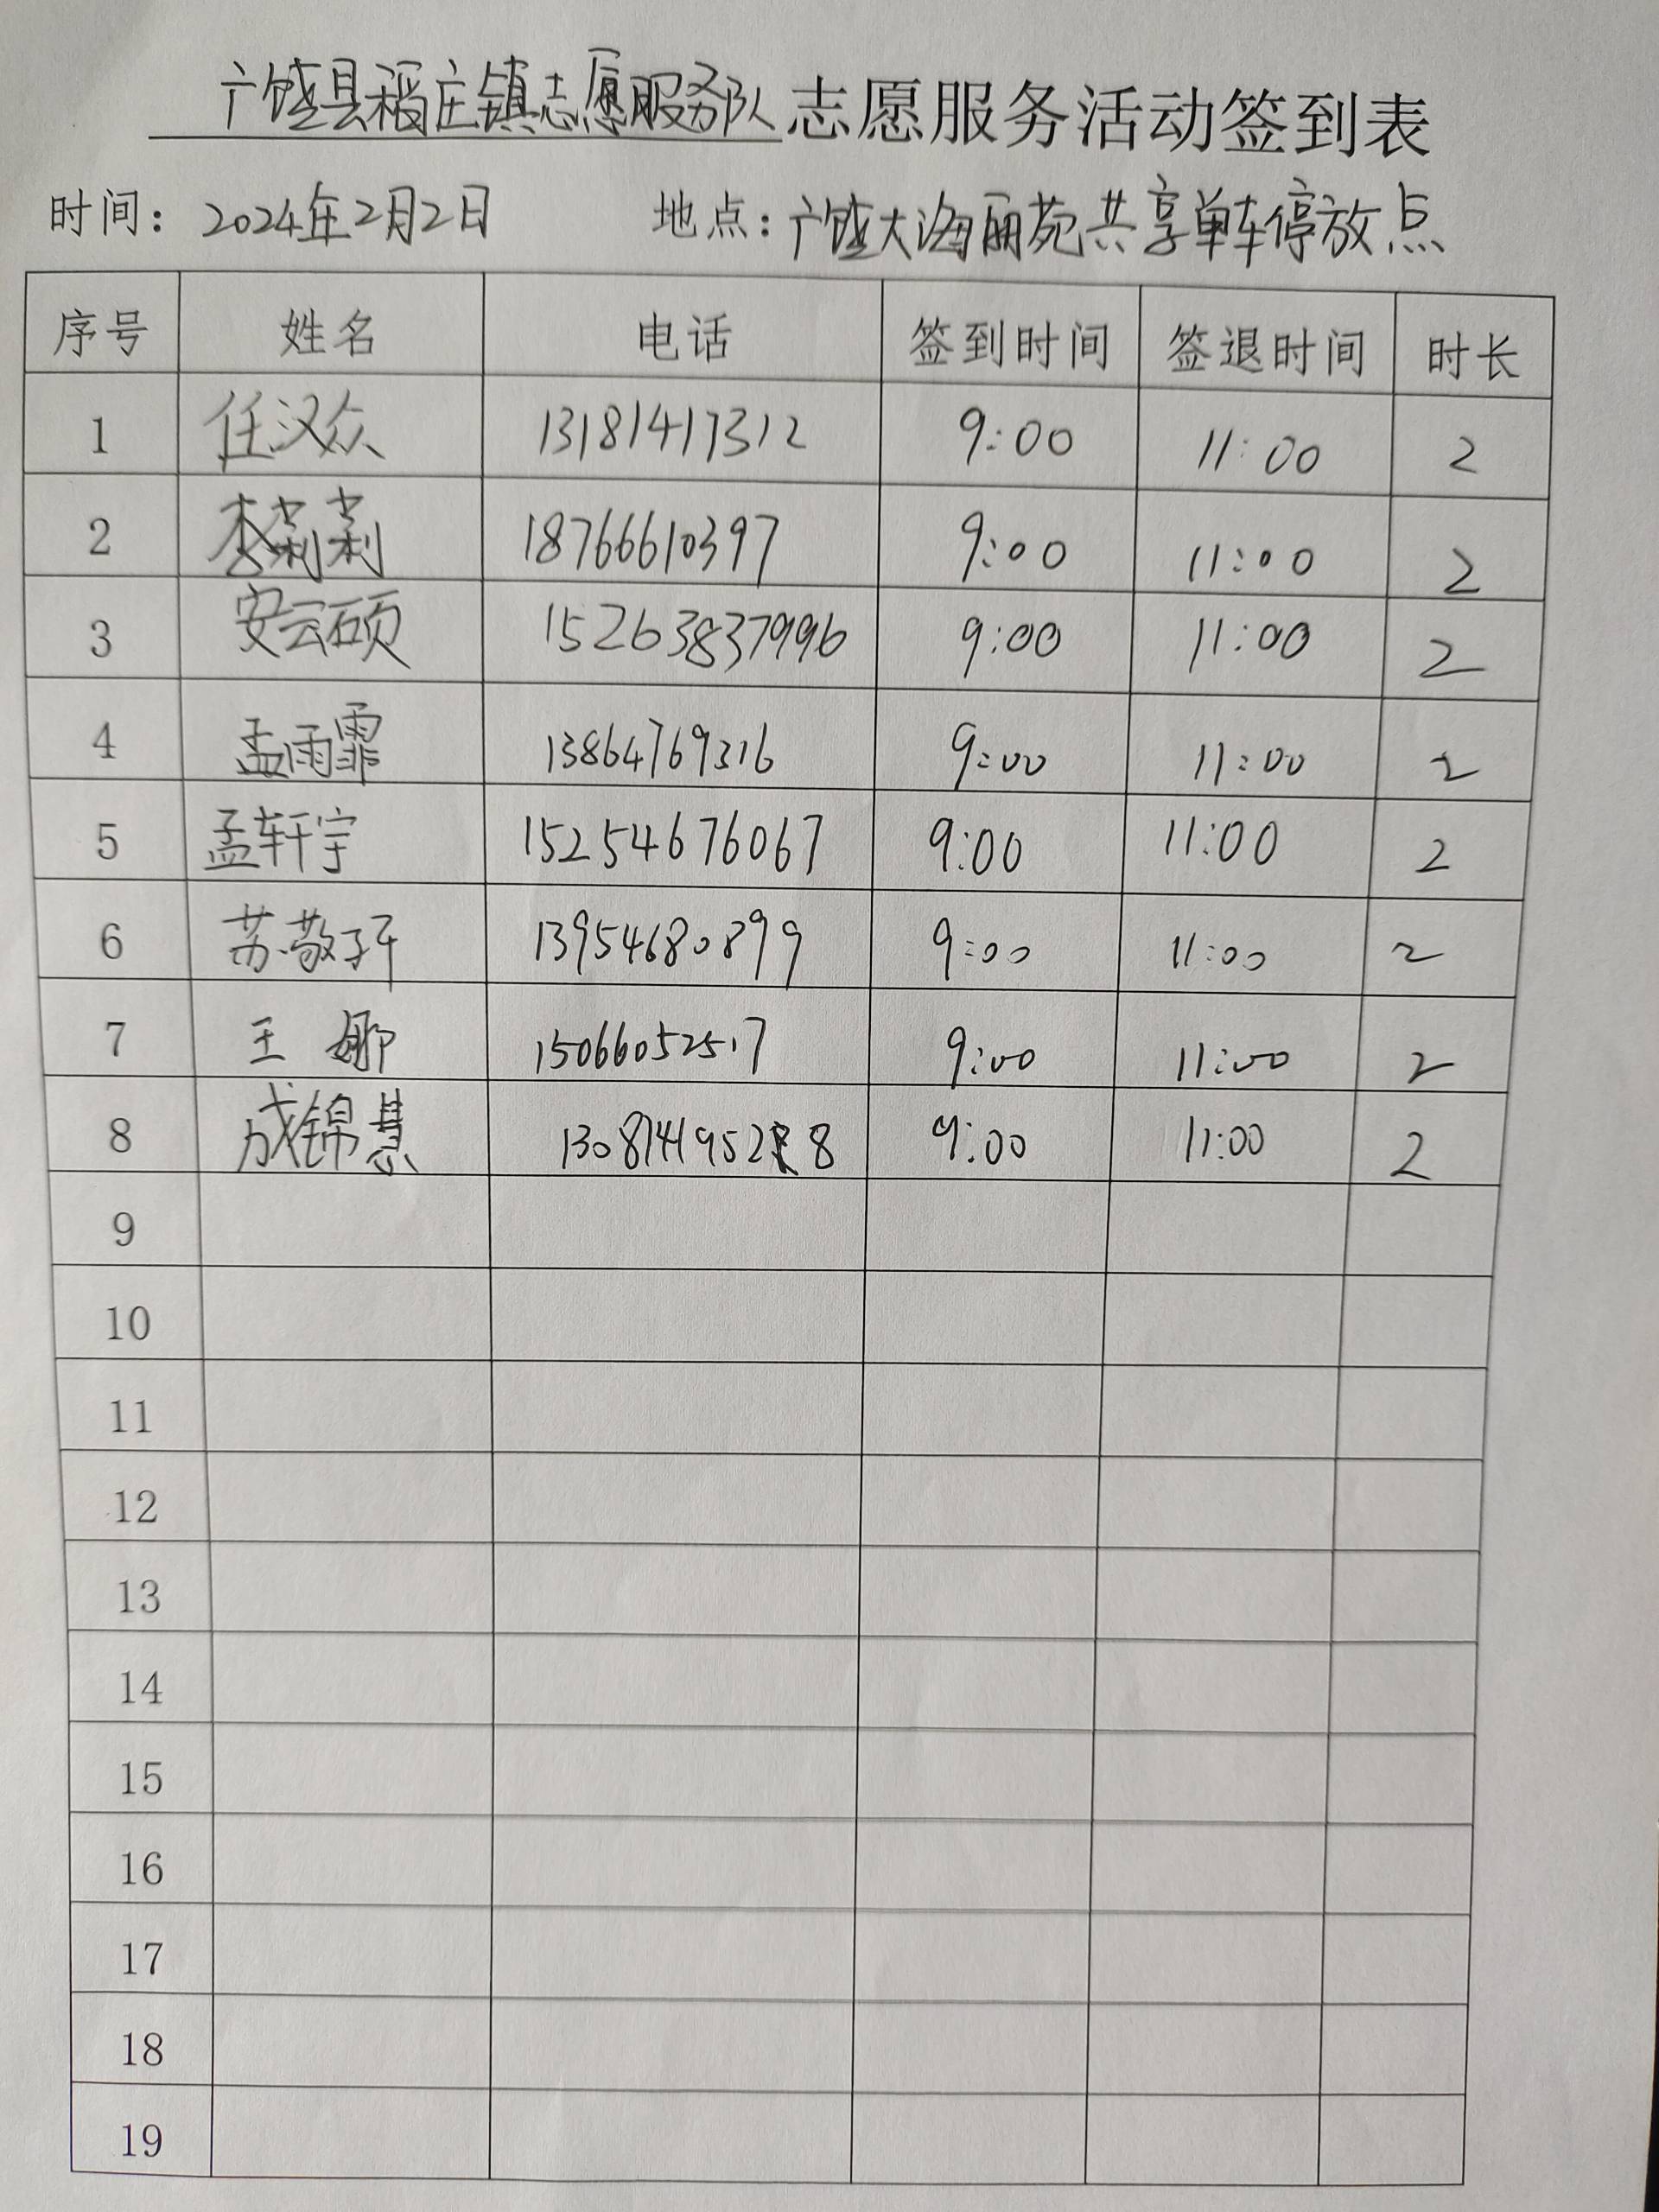 广饶县稻庄镇志愿服务队志愿服务活动签到表
时间：2024年2月2日 地点：广饶大海丽苑共享单车停放点
序号 姓名 电话 签到时间 签退时间 时长
1 任汉众 13181417312 9:00 11:00 2
2 李莉莉 18766610397 9:00 11:00 2
3 安云硕 15263837996 9:00 11:00 2
4 孟雨霏 13864769316 9:00 11:00 2
5 孟轩宇 15254676067 9:00 11:00 2
6 苏敬轩 13954680899 9:00 11:00 2
7 王娜 15066052517 9:00 11:00 2
8 成锦慧 9:00 11:00 2
9
10
11
12
13
14
15
16
17
18
19